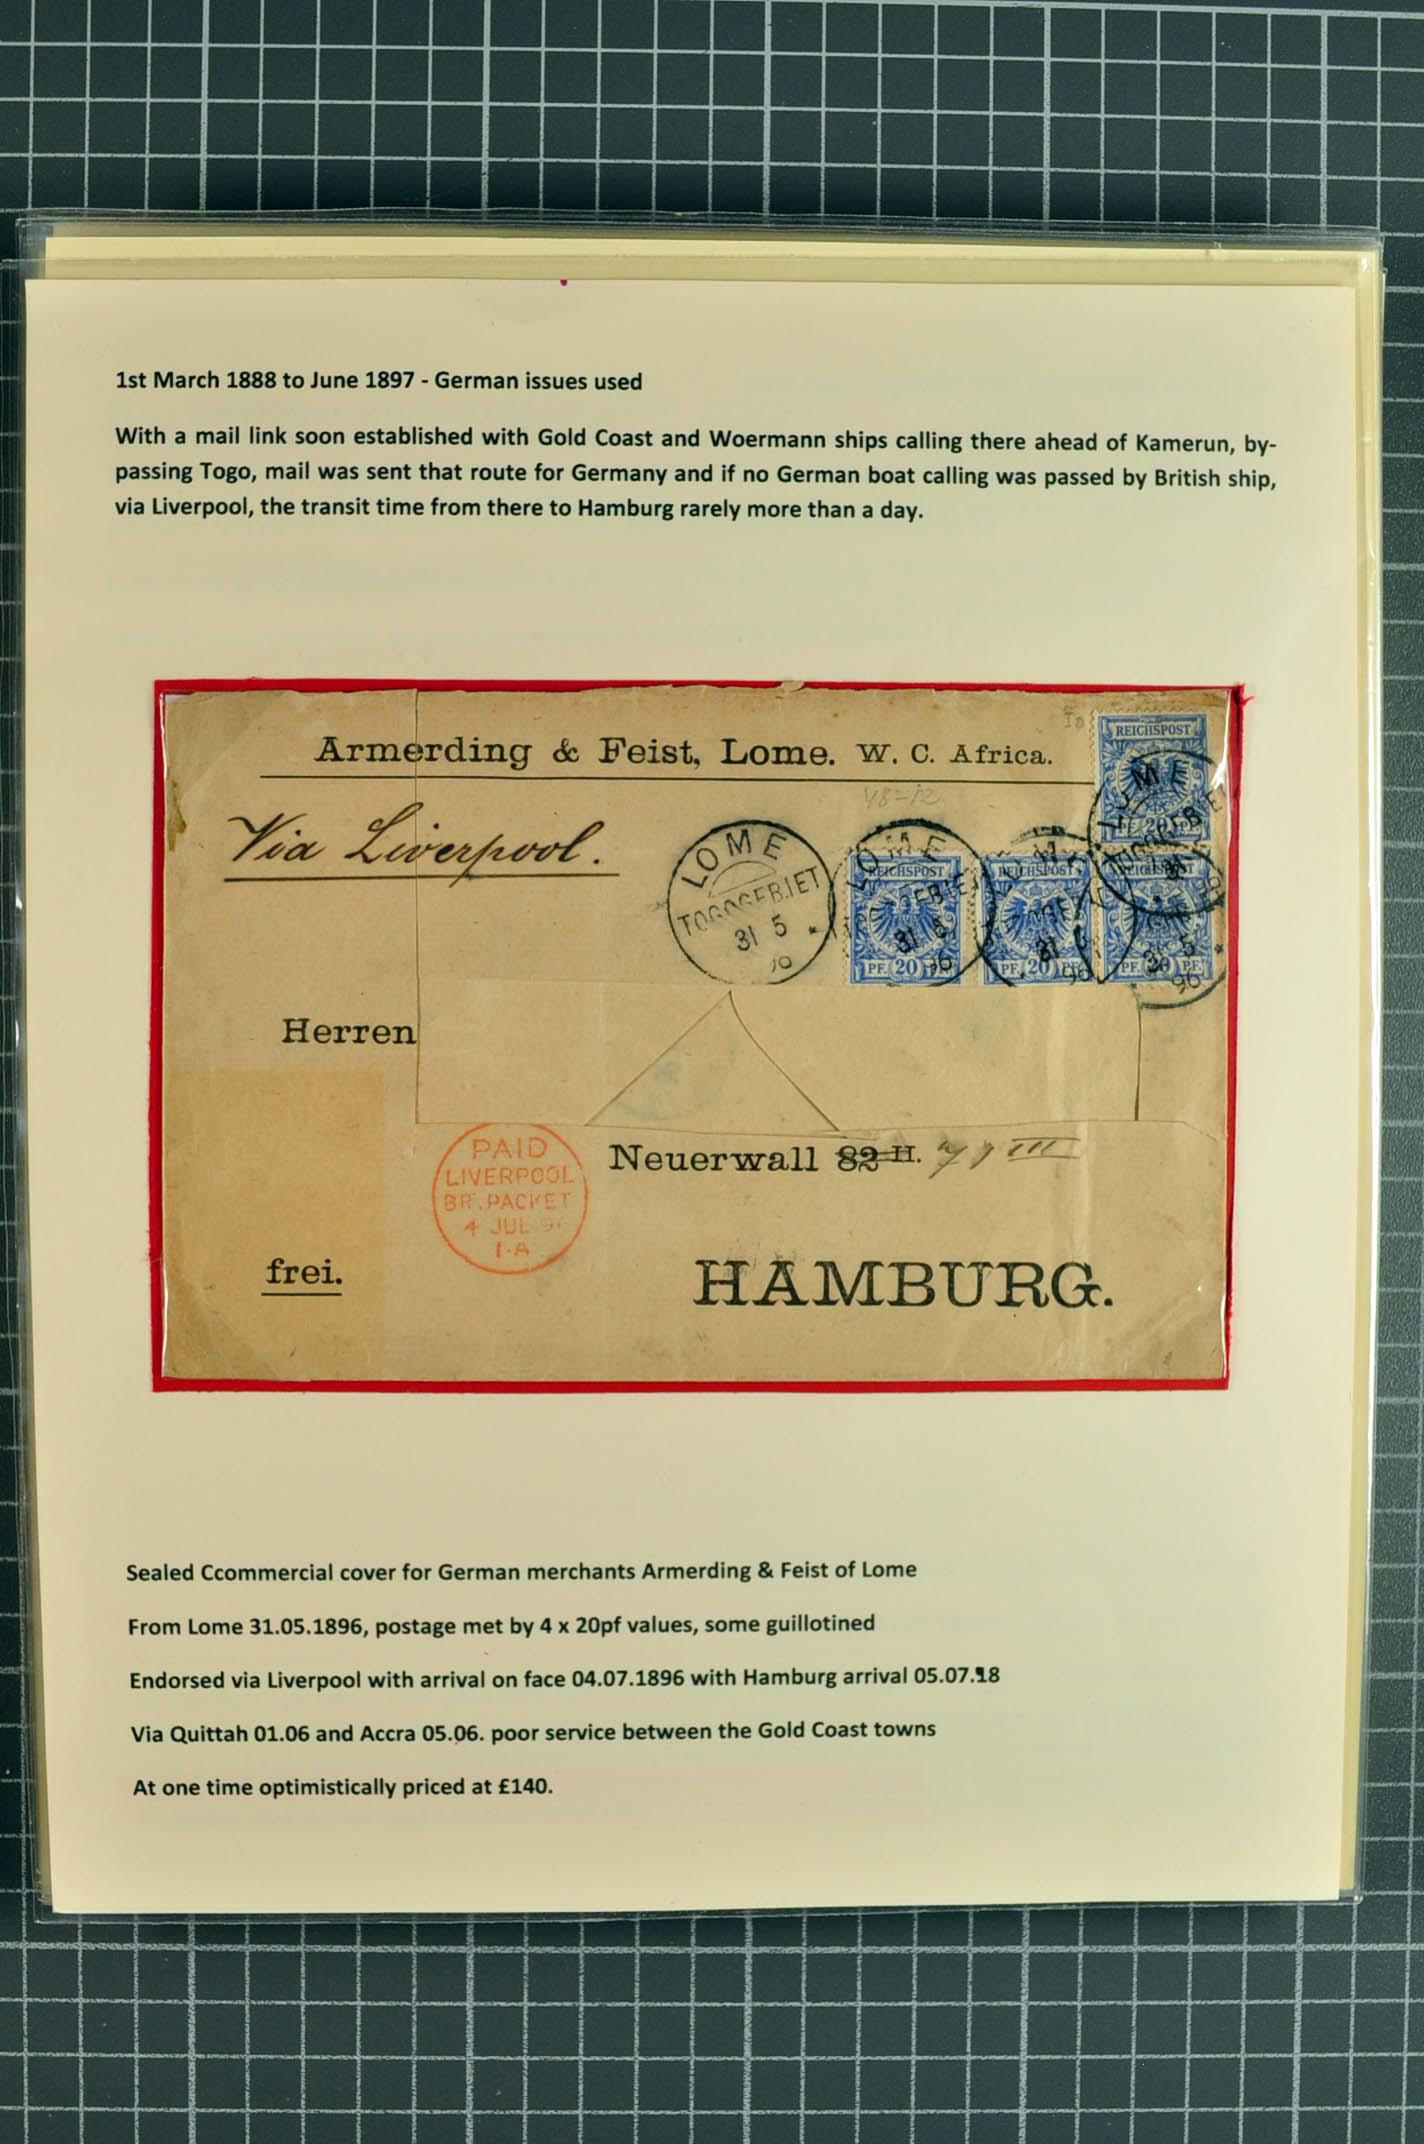 1st March 1888 to June 1897 - German issues used
With a mail link soon established with Gold Coast and Woermann ships calling there ahead of Kamerun, by-
passing Togo, mail was sent that route for Germany and if no German boat calling was passed by British ship,
via Liverpool, the transit time from there to Hamburg rarely more than a day.
Armerding & Feist, Lome. W. C. Africa.
Via Liverpool.
REICHSPOST
PF. 20 PF.
LOME
TOGOGEBIET
31 5
96
LOME
TOGOGEBIET
31 5
96
LOME
TOGOGEBIET
31 5
96
REICHSPOST
REICHSPOST
REICHSPOST
PF. 20 PF.
PF. 20 PF.
PF. 20 PF.
31 5
96
Herren
PAID
LIVERPOOL
BR. PACKET
4 JUL 96
1·A
Neuerwall 82 II. III
frei.
HAMBURG.
Sealed Ccommercial cover for German merchants Armerding & Feist of Lome
From Lome 31.05.1896, postage met by 4 x 20pf values, some guillotined
Endorsed via Liverpool with arrival on face 04.07.1896 with Hamburg arrival 05.07.18
Via Quittah 01.06 and Accra 05.06. poor service between the Gold Coast towns
At one time optimistically priced at £140.